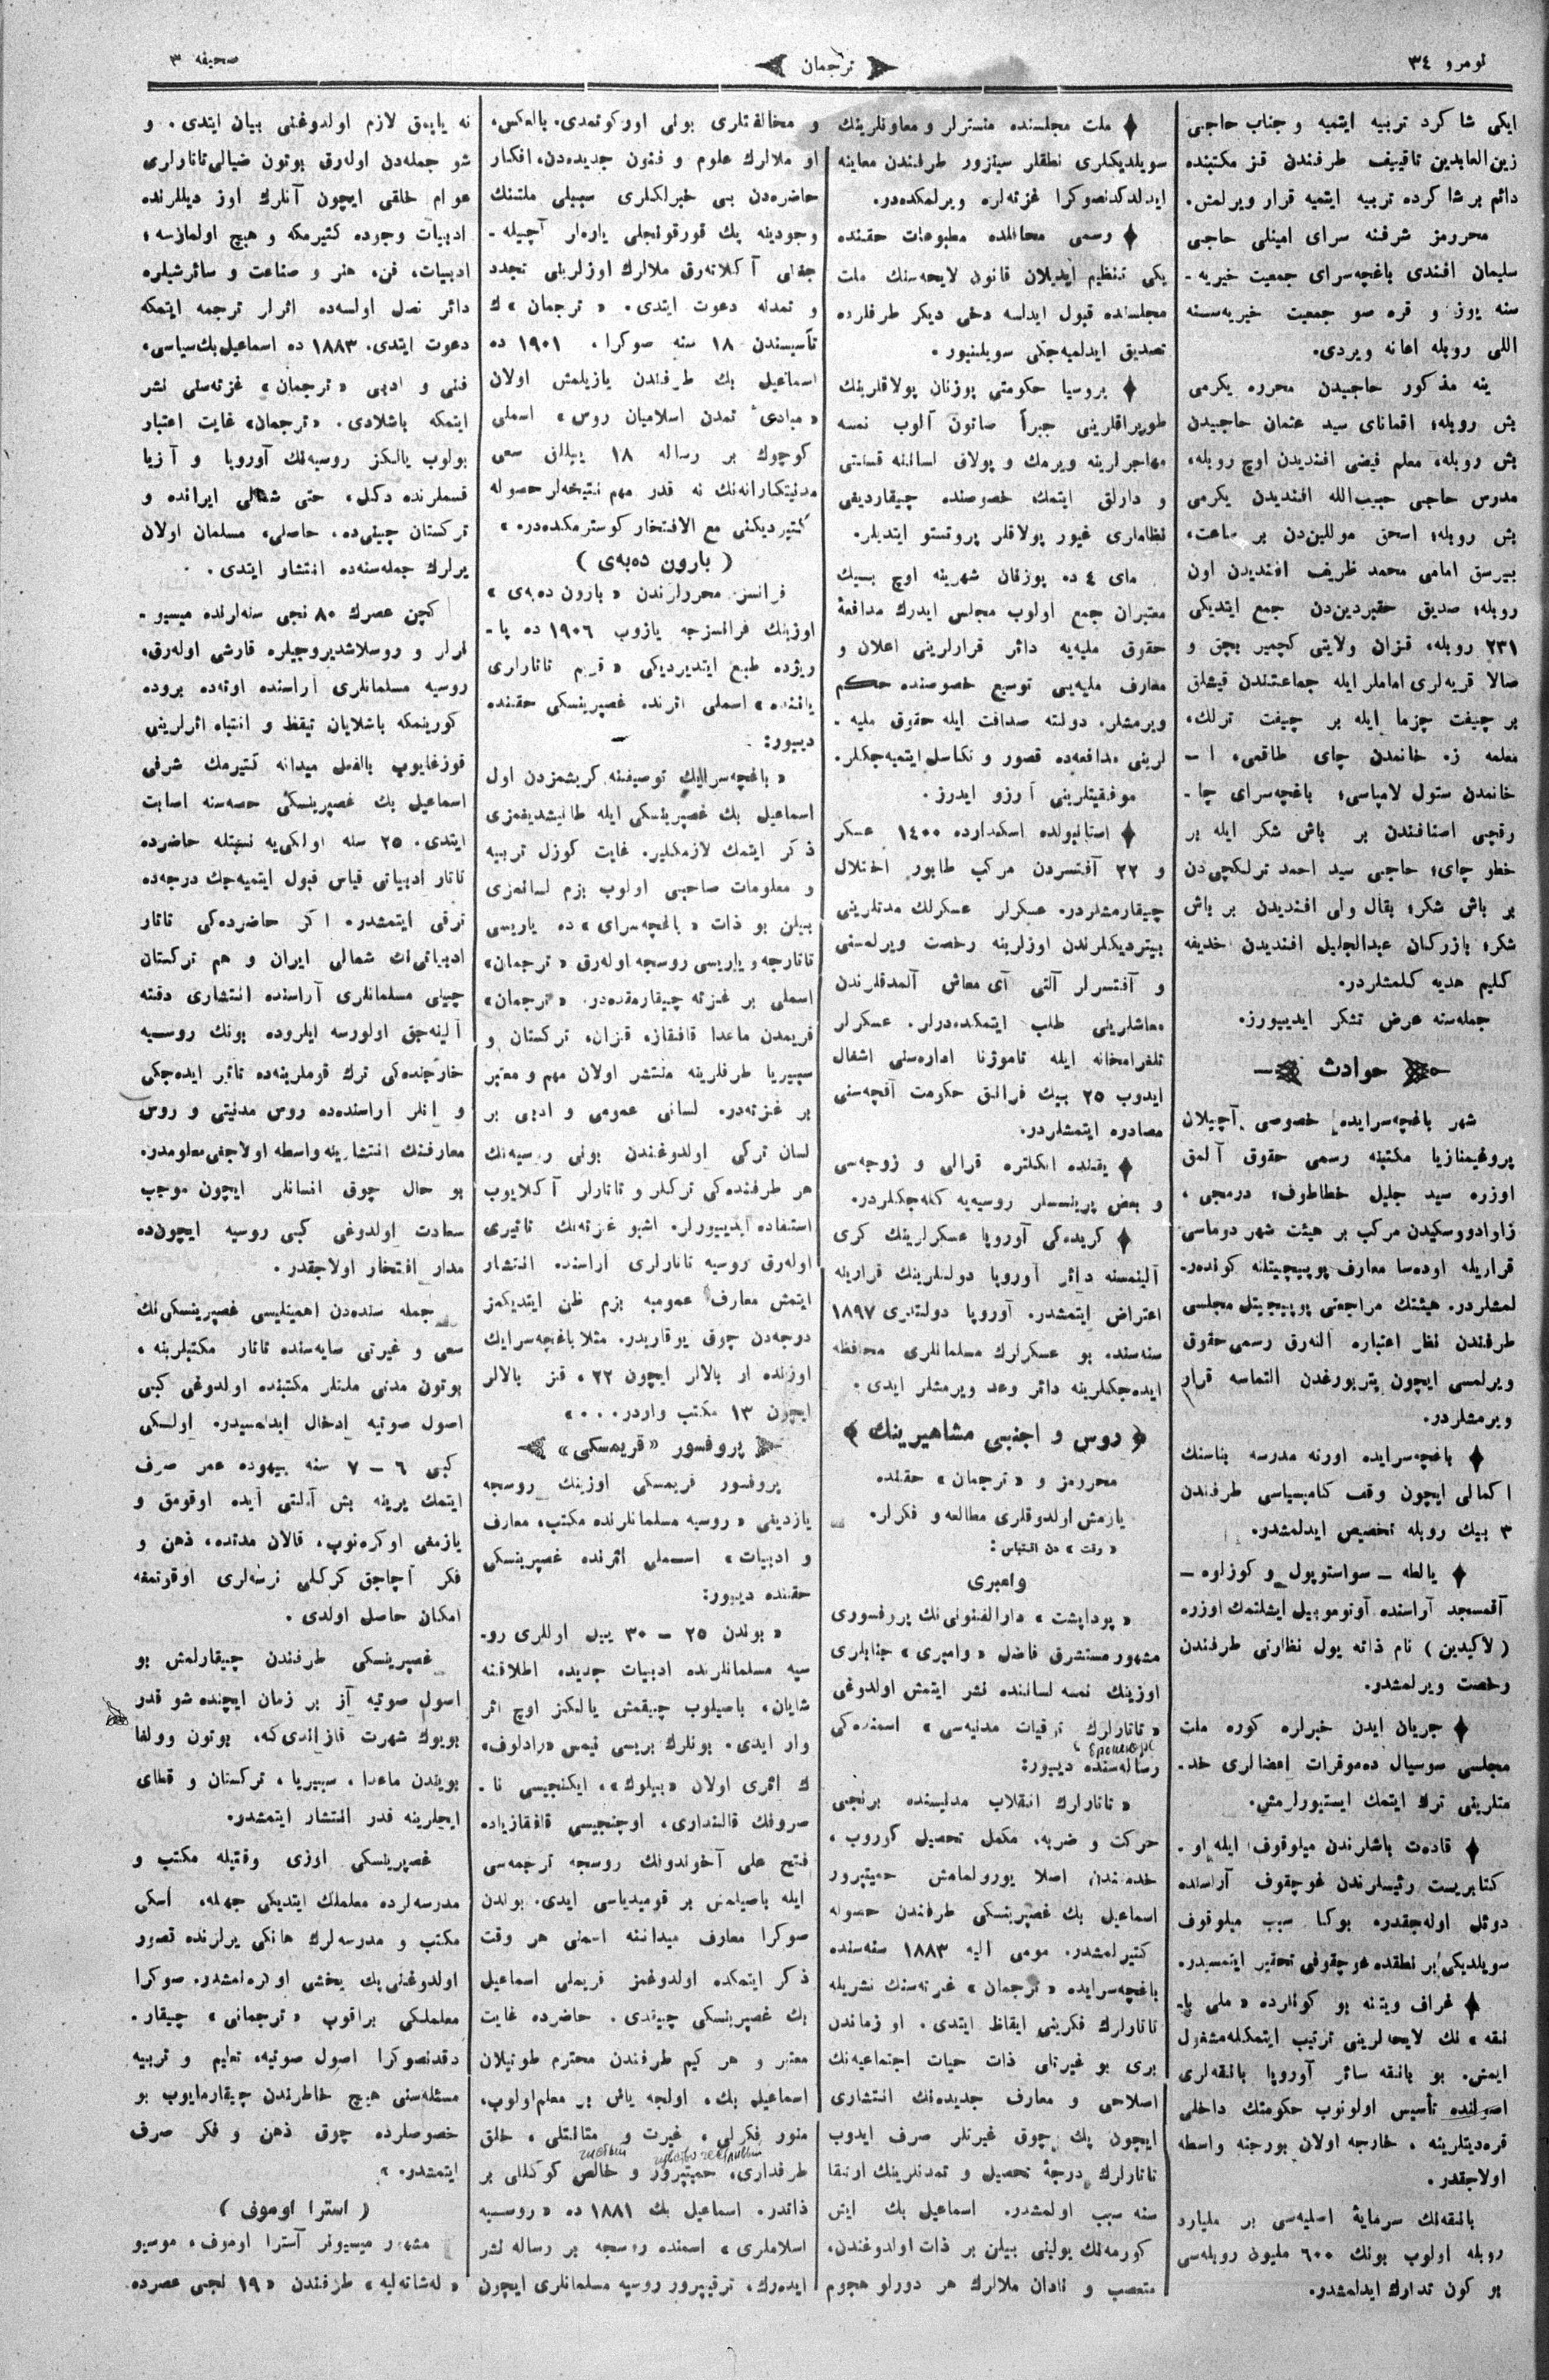 نومرو ٣٤
ترجمان
صحیفه ٣
ایكی شاكرد تربیه ایتمیه و جناب حاجی
زین العابدین تاقییف طرفندن قز مكتبنده
دائم بر شاكرده تربیه ایتمیه قرار ویرلمش.
محررمز شرفنه سرای امینلی حاجی
سلیمان افندی باغچه‌سرای جمعیت خیریه‌-
سنه یوز و قره صو جمعیت خیریه‌سنه
اللی روبله اعانه ویردی.
ینه مذكور حاجیدن محرره یكرمی
بش روبله؛ اقمانای سید عثمان حاجیدن
بش روبله، معلم فیضی افندیدن اوچ روبله،
مدرس حاجی حبیب‌الله افندیدن یكرمی
بش روبله؛ اسحق موللین‌دن بر ساعت،
بیرسق امامی محمد ظریف افندیدن اون
روبله؛ صدیق حقیردین‌دن جمع ایتدیكی
٢٣١ روبله، قزان ولایتی كچمیر بچق و
صالا قریه‌لری اماملر ایله جماعتندن قیشلق
بر چیفت چزما ایله بر چیفت ترلك،
معلمه ز. خانمدن چای طاقمی، ا —
خانمدن ستول لامپاسی؛ باغچه‌سرای چا-
رقجی اصنافندن بر باش شكر ایله بر
خطو چای؛ حاجی سید احمد ترلكچی‌دن
بر باش شكر؛ بقال ولی افندیدن بر باش
شكر؛ بازركان عبدالجلیل افندیدن خدیفه
كلیم هدیه كلمشلردر.
جمله‌سنه عرض تشكر ایدییورز.
حوادث
شهر باغچه‌سرایده خصوصی آچیلان
پروغیمنازیا مكتبنه رسمی حقوق آلمق
اوزره سید جلیل خطاطوف؛ درمجی ،
زاوادووسكیدن مركب بر هیئت شهر دوماسی
قراریله اوده‌سا معارف پوپیچیتلنه كوندر-
لمشلردر. هیئتك مراجعتی پوپیچیتل مجلسی
طرفندن نظر اعتباره النه‌رق رسمی حقوق
ویرلمسی ایچون پتربورغدن التماسه قرار
ویرمشلردر.
♦ باغچه‌سرایده اورته مدرسه بناسنك
اكمالی ایچون وقف كامیسیاسی طرفندن
٣ بیك روبله تخصیص ایدلمشدر.
♦ یالطه — سواستوپول و كوزلوه —
آقمسجد آراسنده آوتوموبیل ایشلتمك اوزره
( لاكیدین ) نام ذاته یول نظارتی طرفندن
رخصت ویرلمشدر.
♦ جریان ایدن خبرلره كوره ملت
مجلسی سوسیال ده‌موقرات اعضالری خد-
متلرینی ترك ایتمك ایستیورلرمش.
♦ قاده‌ت باشلرندن میلوقوف ایله او-
كتابریست رئیسلرندن غوچقوف آراسنده
دوئل اوله‌جقدر. بوكا سبب میلوقوف
سویلدیكی بر نطقده غوچقوفی تحقیر ایتمسیدر.
♦ غراف ویتته بو كونلرده «ملی با-
نقه» نك لایحه‌لرینی ترتیب ایتمكله‌مشغول
ایمش. بو بانقه سائر آوروپا بانقه‌لری
اصولنده تأسیس اولونوب حكومتك داخلی
قره‌دیتلرینه ، خارجه اولان بورجنه واسطه
اولاجقدر.
بانقه‌نك سرمایهٔ اصلیه‌سی بر ملیارد
روبله اولوب بونك ٦٠٠ ملیون روبله‌سی
بو كون تدارك ایدلمشدر.
♦ ملت مجلسنده منسترلر و معاونلرینك
سویلدیكلری نطقلر سینزور طرفندن معاینه
ایدلدكدنصوكرا غزته‌لره ویرلمكده‌در.
♦ رسمی محاللده مطبوعات حقنده
یكی تنظیم ایدیلان قانون لایحه‌سنك ملت
مجلسنده قبول ایدلسه دخی دیكر طرفلرده
تصدیق ایدلمیه‌جكی سویلنیور .
♦ پروسیا حكومتی پوزنان پولاقلرینك
طوپراقلرینی جبراً صاتون آلوب نمسه
مهاجرلرینه ویرمك و پولاق لساننه قسنتی
و دارلق ایتمك خصوصنده چیقاردیغی
نظاملری غیور پولاقلر پروتستو ایتدیلر.
مای ٤ ده پوزنان شهرینه اوچ بیك
معتبران جمع اولوب مجلس ایدرك مدافعهٔ
حقوق ملیه‌یه دائر قرارلرینی اعلان و
معارف ملیه‌یی توسیع خصوصنده حكم
ویرمشلر. دولته صداقت ایله حقوق ملیه-
لرینی مدافعه‌ده قصور و تكاسل ایتمیه‌جكلر.
موفقیتلرینی آرزو ایدرز .
♦ استانبولده اسكدارده ١٤٠٠ عسكر
و ٢٢ آفتسردن مركب طابور اختلال
چیقارمشلردر. عسكرلر عسكرلك مدتلرینی
بیتردیكلرندن اوزلرینه رخصت ویرلمسنی
و آفتسرلر آلتی آی معاش آلمدقلرندن
معاشلرینی طلب ایتمكده‌درلر. عسكرلر
تلغرامخانه ایله تاموژنا اداره‌سنی اشغال
ایدوب ٢٥ بیك فرانق حكومت آقچه‌سنی
مصادره ایتمشلردر.
♦ یقینده انكلتره قرالی و زوجه‌سی
و بعض پرینسلر روسیه‌یه كله‌جكلردر.
♦ كریده‌كی آوروپا عسكرلرینك كری
آلینمسنه دائر آوروپا دولتلرینك قرارینه
اعتراض ایتمشدر. آوروپا دولتلری ١٨٩٧
سنه‌سنده بو عسكرلرك مسلمانلری محافظه
ایده‌جكلرینه دائر وعد ویرمشلر ایدی.
﴿ روس و اجنبی مشاهیرینك ﴾
محررمز و «ترجمان» حقنده
یازمش اولدوقلری مطالعه و فكرلر.
«وقت» دن اقتباس:
وامبری
«پوداپشت» دارالفنونی‌نك پروفسوری
مشهور مستشرق فاضل «وامبری» جنابلری
اوزینك نمسه لساننده نشر ایتمش اولدوغی
«تاتارلرك ترقیات مدنیه‌سی» اسمنده‌كی
брошюре
رساله‌سنده دییور:
«تاتارلرك انقلاب مدنیسنده برنجی
حركت و ضربه، مكمل تحصیل كوروب ،
خدمتندن اصلا یورولمامش حمیتپرور
اسماعیل بك غصپرینسكی طرفندن حصوله
كتیرلمشدر. مومی الیه ١٨٨٣ سنه‌سنده
باغچه‌سرایده «ترجمان» غزته‌سنك نشریله
تاتارلرك فكرینی ایقاظ ایتدی. او زماندن
بری بو غیرتلی ذات حیات اجتماعیه‌نك
اصلاحی و معارف جدیده‌نك انتشاری
ایچون پك چوق غیرتلر صرف ایدوب
تاتارلرك درجهٔ تحصیل و تمدنلرینك ارتقا
سنه سبب اولمشدر. اسماعیل بك ایش
كورمه‌نك یولینی بیلن بر ذات اولدوغندن،
متعصب و نادان ملالرك هر دورلو هجوم
و مخالفتلری بونی اوركوتمدی. بالعكس،
او ملالرك علوم و فنون جدیده‌دن، افكار
حاضره‌دن بی خبرلكلری سببلی ملتنك
وجودینه پك قورقونجلی یاره‌لر آچیله-
جغنی آكلاته‌رق ملالرك اوزلرینی تجدد
و تمدنه دعوت ایتدی. «ترجمان»ك
تأسیسندن ١٨ سنه صوكرا، ١٩٠١ ده
اسماعیل بك طرفندن یازیلمش اولان
«مبادیٔ تمدن اسلامیان روس» اسملی
كوچوك بر رساله ١٨ ییللق سعی
مدنیتكارانه‌نك نه قدر مهم نتیجه‌لر حصوله
كتیردیكنی مع الافتخار كوسترمكده‌در.»
( بارون ده‌بەی )
فرانسز محررلرندن «بارون ده‌بەی»
اوزینك فرانسزجه یازوب ١٩٠٦ ده پا-
ریژده طبع ایتدیردیكی «قریم تاتارلری
یاننده» اسملی اثرنده غصپرینسكی حقنده
دییور:
«باغچه‌سرایك توصیفنه كریشمزدن اول
اسماعیل بك غصپرینسكی ایله طانیشدیغمزی
ذكر ایتمك لازمكلیر. غایت كوزل تربیه
و معلومات صاحبی اولوب بزم لسانمزی
بیلن بو ذات «باغچه‌سرای» ده یاریسی
تاتارجه و یاریسی روسجه اوله‌رق «ترجمان»
اسملی بر غزته چیقارمقده‌در. «ترجمان»
قریمدن ماعدا قافقاز، قزان، تركستان و
سیبیریا طرفلرینه منتشر اولان مهم و معتبر
بر غزته‌در. لسانی عمومی و ادبی بر
لسان تركی اولدوغندن بونی روسیه‌نك
هر طرفنده‌كی تركلر و تاتارلر آكلایوب
استفاده ایدییورلر. اشبو غزته‌نك تاثیری
اوله‌رق روسیه تاتارلری اراسنده انتشار
ایتمش معارف عمومیه بزم ظن ایتدیكمز
درجه‌دن چوق یوقاریدر. مثلا باغچه‌سرایك
اوزنده ار بالالر ایچون ٢٢، قز بالالر
ایچون ١٣ مكتب واردر...»
پروفسور «قریمسكی»
پروفسور قریمسكی اوزینك روسجه
یازدیغی «روسیه مسلمانلرنده مكتب، معارف
و ادبیات» اسملی اثرنده غصپرینسكی
حقنده دییور:
«بوندن ٢٥ — ٣٠ ییل اوللری رو-
سیه مسلمانلرنده ادبیات جدیده اطلاقنه
شایان، باصیلوب چیقمش یالكز اوچ اثر
وار ایدی. بونلرك بریسی نیمس «رادلوف»
ك اثری اولان «بیلوك»، ایكنجیسی نا-
صروفك قالنداری، اوچنجیسی قافقازیاده
فتح علی آخوندوفك روسجه ترجمه‌سی
ایله باصیلمش بر قومیدیاسی ایدی. بوندن
صوكرا معارف میداننه اسمنی هر وقت
ذكر ایتمكده اولدوغمز قریملی اسماعیل
بك غصپرینسكی چیقدی. حاضرده غایت
معتبر و هر كیم طرفندن محترم طوتیلان
اسماعیل بك، اولجه یاش بر معلم اولوب،
منور فكرلی، غیرت و متانتلی، خلق
طرفداری، حمیتپرور و خالص كوكللی بر
ذاتدر. اسماعیل بك ١٨٨١ ده «روسیه
اسلاملری» اسمنده روسجه بر رساله نشر
ایده‌رك، ترقیپرور روسیه مسلمانلری ایچون
نه یاپمق لازم اولدوغنی بیان ایتدی. و
شو جمله‌دن اوله‌رق بوتون ضیالی تاتارلری
عوام خلقی ایچون آنلرك اوز دیللرنده
ادبیات وجوده كتیرمكه و هیچ اولمازسه؛
ادبیات، فن، هنر و صناعت و سائر شیلره
دائر نصل اولسه‌ده اثرلر ترجمه ایتمكه
دعوت ایتدی. ١٨٨٣ ده اسماعیل بك سیاسی،
فنی و ادبی «ترجمان» غزته‌سنی نشر
ایتمكه باشلادی. «ترجمان» غایت اعتبار
بولوب یالكز روسیه‌نك آوروپا و آزیا
قسملرنده دكل، حتی شمالی ایرانده و
تركستان چینی‌ده، حاصلی، مسلمان اولان
یرلرك جمله‌سنه‌ده انتشار ایتدی.
كچن عصرك ٨٠ نجی سنه‌لرنده میسیو-
نرلر و روسلاشدیروجیلره قارشی اوله‌رق،
روسیه مسلمانلری اراسنده اوته‌ده بروده
كورینمكه باشلایان تیقظ و انتباه اثرلرینی
قوزغایوب بالفعل میدانه كتیرمك شرفی
اسماعیل بك غصپرینسكی حصه‌سنه اصابت
ایتدی. ٢٥ سنه اولكی‌یه نسبتله حاضرده
تاتار ادبیاتی قیاس قبول ایتمیه‌جك درجه‌ده
ترقی ایتمشدر. اكر حاضرده‌كی تاتار
ادبیاتی‌نك شمالی ایران و هم تركستان
چینی مسلمانلری آراسنده انتشاری دقته
آلینه‌جق اولورسه ایلروده بونك روسیه
خارجنده‌كی ترك قوملرینه‌ده تاثیر ایده‌جكی
و انلر اراسنده‌ده روس مدنیتی و روس
معارفنك انتشارینه واسطه اولاجغی معلومدر.
بو حال چوق انسانلر ایچون موجب
سعادت اولدوغی كبی روسیه ایچون‌ده
مدار افتخار اولاجقدر.
جمله سنده‌ن اهمیتلیسی غصپرینسكی‌نك
سعی و غیرتی سایه‌سنده تاتار مكتبلرینه ،
بوتون مدنی ملتلر مكتبنده اولدوغی كبی
اصول صوتیه ادخال ایدلمسیدر. اولسكی
كبی ٦ — ٧ سنه بیهوده عمر صرف
ایتمك یرینه بش آلتی آیده اوقومق و
یازمغی اوكره‌نوب، قالان مدتده، ذهن و
فكر آچاجق كركلی نرسه‌لری اوقوتمغه
امكان حاصل اولدی .
غصپرینسكی طرفندن چیقارلمش بو
اصول صوتیه آز بر زمان ایچنده شو قدر
بویوك شهرت قازاندی‌كه، بوتون وولغا
بویندن ماعدا ، سیبیریا ، تركستان و قطای
ایچلرینه قدر انتشار ایتمشدر.
غصپرینسكی اوزی وقتیله مكتب و
مدرسه‌لرده معلملك ایتدیكی جهتله، اسكی
مكتب و مدرسه‌لرك هانكی یرلرنده قصور
اولدوغنی پك یخشی اوكره‌نمشدر. صوكرا
معلملكی براقوپ «ترجمانی» چیقار-
دقدنصوكرا اصول صوتیه، تعلیم و تربیه
مسئله‌سنی هیچ خاطرندن چیقارمایوب بو
خصوصلرده چوق ذهن و فكر صرف
ایتمشدر.»
( استرا اوموف )
مشهور میسیونر آسترا اوموف، موسیو
«له‌شاته‌لیه» طرفندن «١٩ نجی عصرده